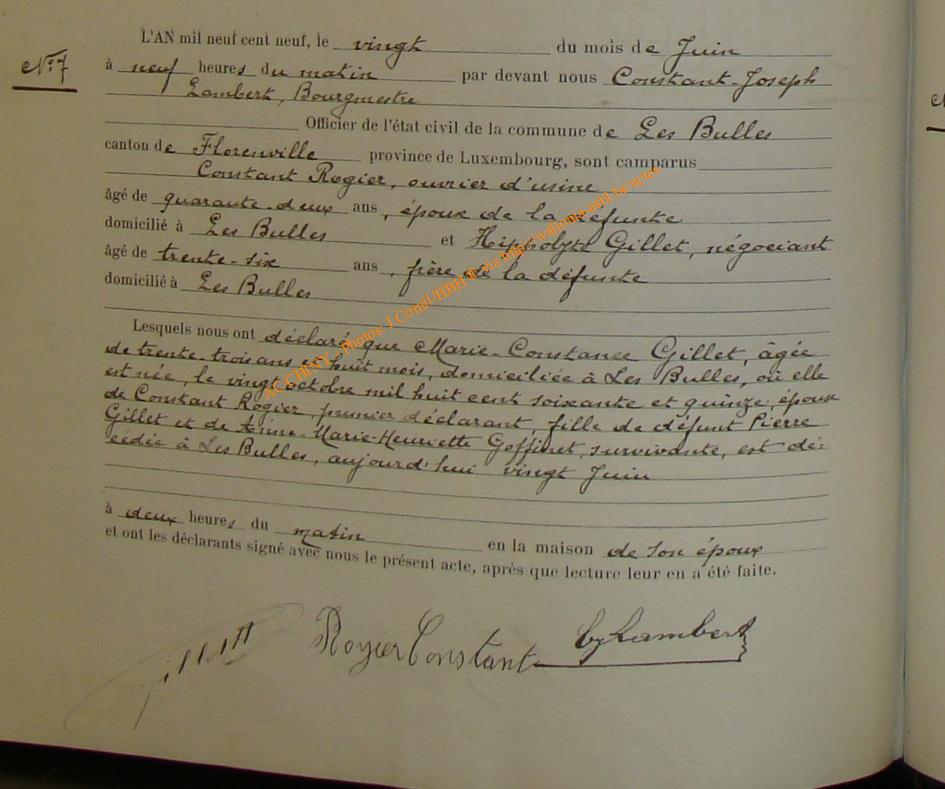 L'AN mil neuf cent neuf, le vingt du mois de Juin
N° 7
à neuf heures du matin par devant nous Constant-Joseph
Lambert, Bourgmestre
Officier de l'état civil de la commune de Les Bulles
canton de Florenville province de Luxembourg, sont camparus
Constant Rogier, ouvrier d'usine
âgé de quarante-deux ans, époux de la défunte
domicilié à Les Bulles et Hippolyte Gillet, négociant
âgé de trente-six ans, frère de la défunte
domicilié à Les Bulles
Lesquels nous ont déclaré que Marie-Constance Gillet, âgée
de trente-trois ans et huit mois, domiciliée à Les Bulles, où elle
est née, le vingt octobre mil huit cent soixante et quinze, épouse
de Constant Rogier, premier déclarant, fille de défunt Pierre
Gillet et de Anne-Marie-Henriette Goffinet, survivante, est dé-
cédée à Les Bulles, aujourd'hui vingt Juin
à deux heures du matin en la maison de son époux
et ont les déclarants signé avec nous le présent acte, après que lecture leur en a été faite.
Gillett Rogier Constant CJLambert
ACCHINY - Photos J.Comil/HBH